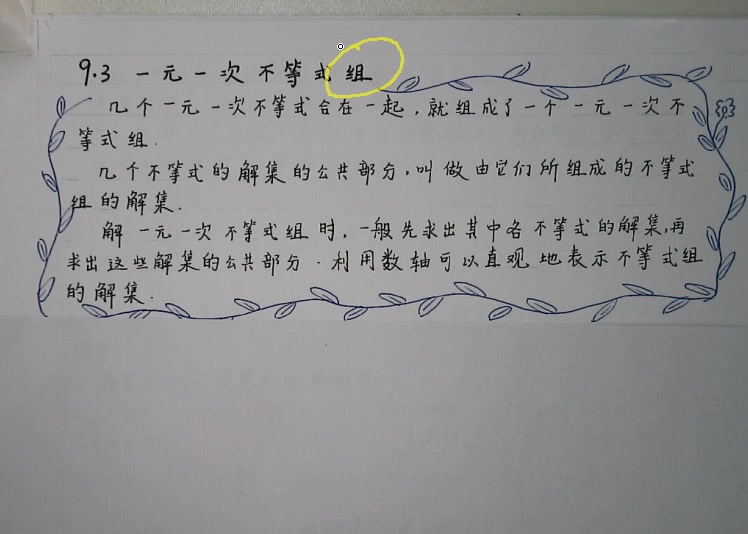 9.3 一元一次不等式组
几个一元一次不等式合在一起,就组成了一个一元一次不
等式组.
几个不等式的解集的公共部分,叫做由它们所组成的不等式
组的解集.
解一元一次不等式组时,一般先求出其中各不等式的解集,再
求出这些解集的公共部分.利用数轴可以直观地表示不等式组
的解集.